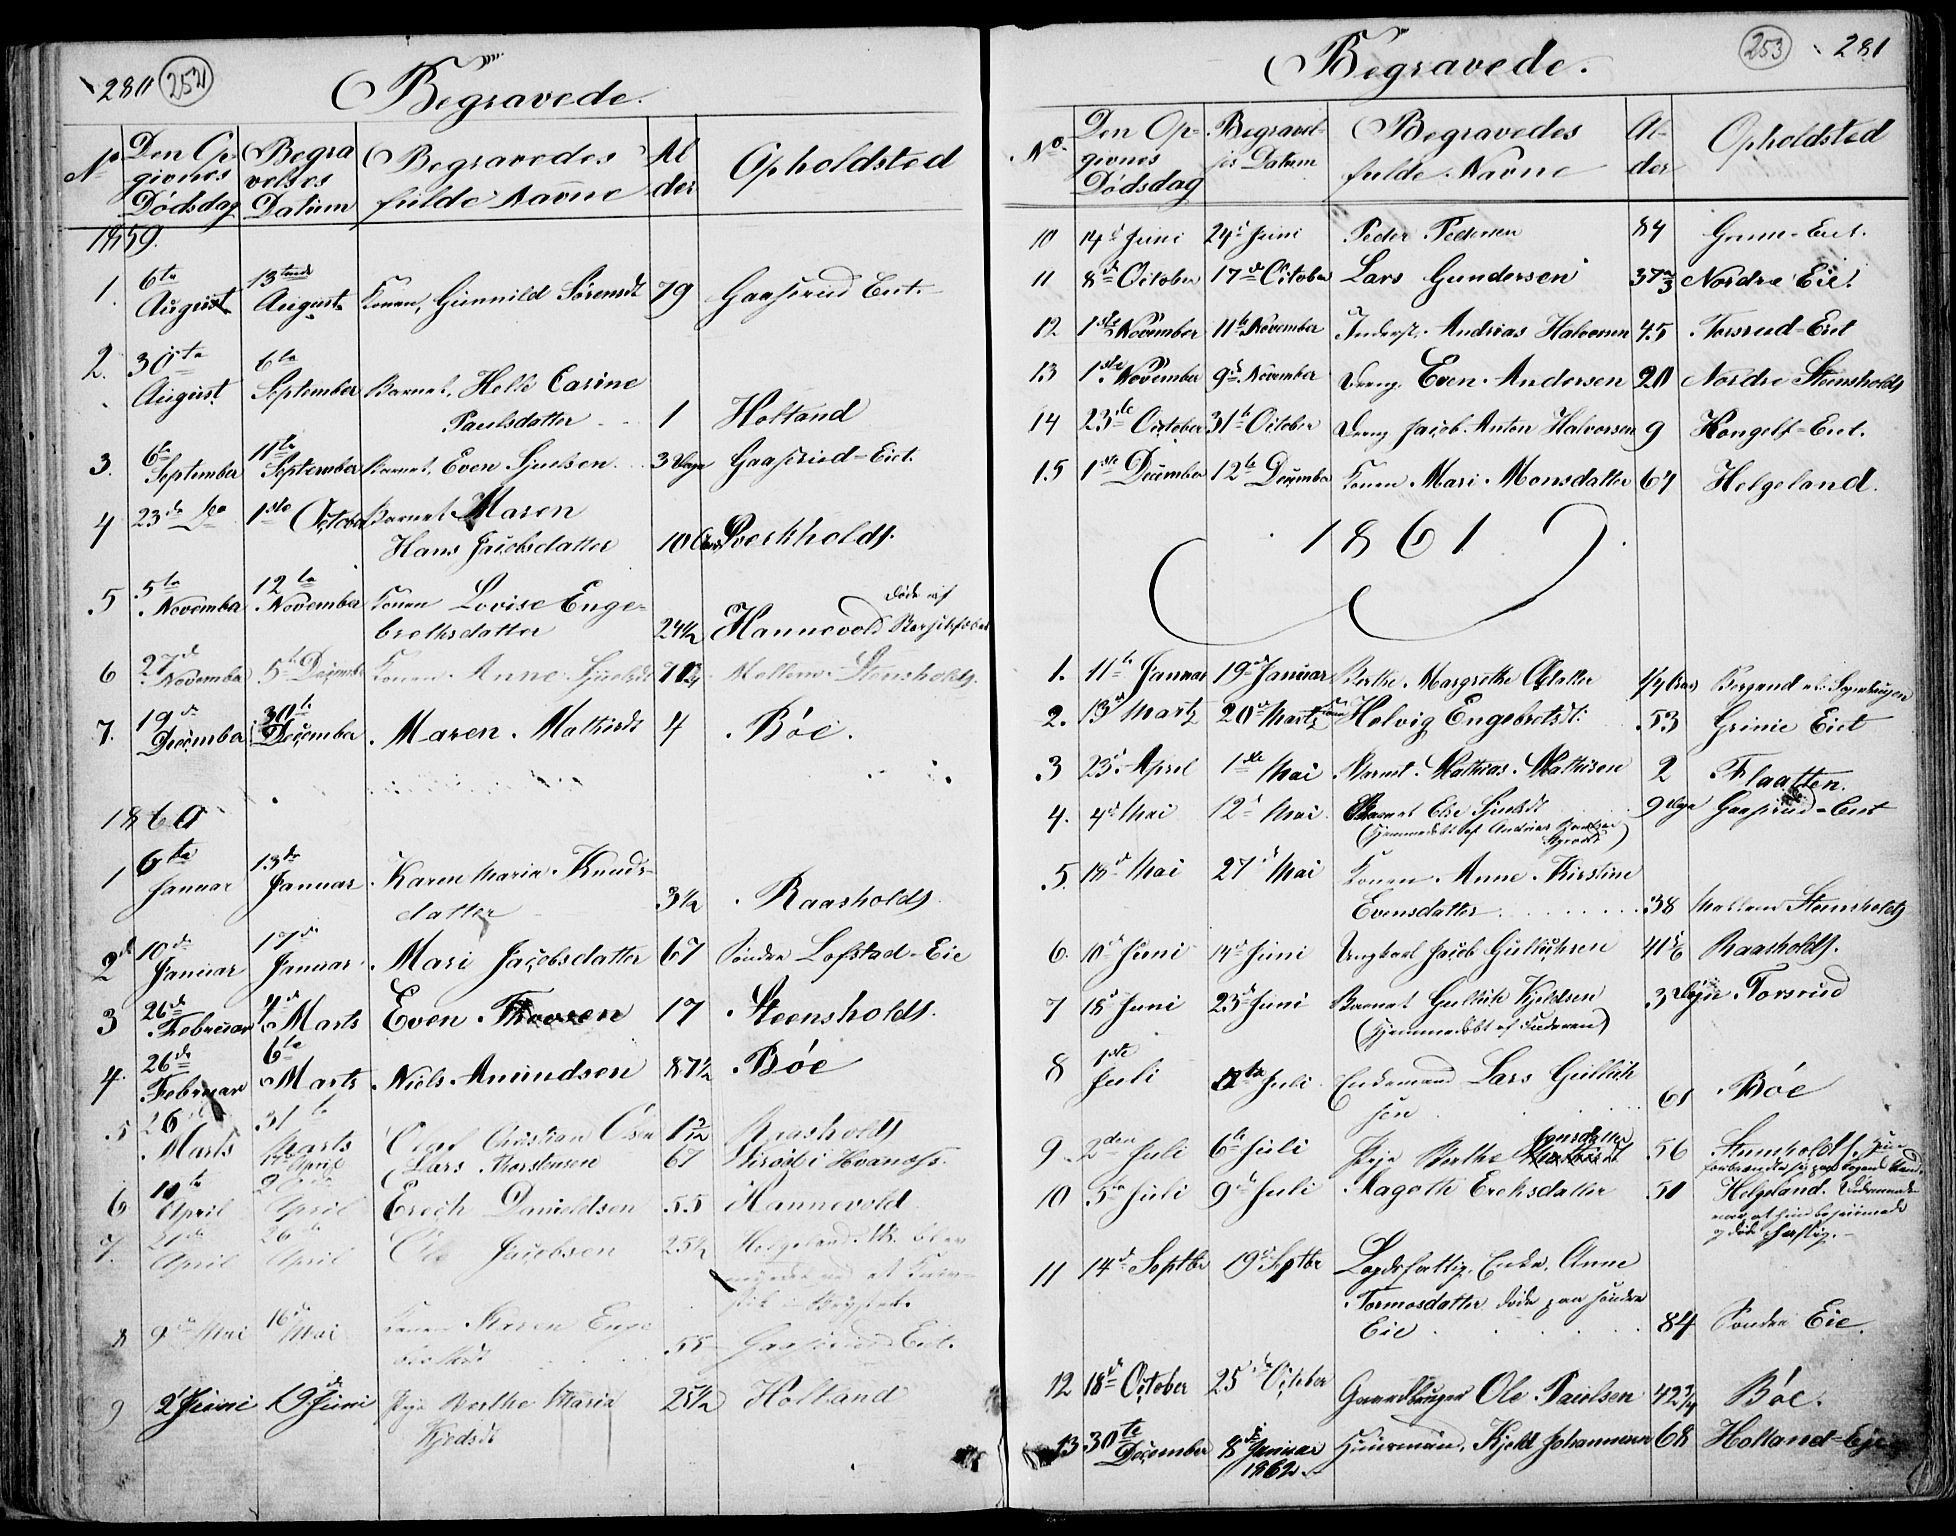 280 252
Begravede.
No Den Opgivnes Dødsdag Begravelses Datum Begravedes fulde Navne Alder Opholdsted
1859.
1. 6te August 13tende August Konen, Gunnild Sørensdt 79 Gaasrud Eiet.
2. 30te August 6te September Barnet, Helle Carine
Paulsdatter 1 Holtand
3. 6te September 11te September Barnet, Even 3 Uger Gaasrud-Eiet.
4 23de 1ste October Barnet Maren
Hans Jacobsdatter 10
5 5te November 12te November Konen Lovise Enge-
brethsdatter 24½ Hannevold døde af
6 27d November 5te December Konen Anne Mellem-Stensholdt.
7. 19de December 30te December Maren Mathisdt 4 Bøe.
1860
1 6te Januar 13de Januar Karen Maria Knuds-
datter 3½ Raasholdt
2d 10de Januar 17de Januar Mari Jacobsdatter 67 Søndre Lofstad-Eie
3 26de Februar 4de Marts Even 17 Steensholdt.
4. 26de Februar 6te Marts Niels Amundsen 87½ Bøe
5 26 Marts 31te Marts Olaf Christian Olsen Raasholdt
April Lars Thorstensen 67
6 10te April April Erich Danieldsen 55 Hannevold
7. 21de April 26de April Ole Jacobsen 25½ Helgeland
8 9de Mai 16de Mai Konen Maren Enge
55 Gaasrud Eiet.
9 2d Juni 9d Juni Pige Berthe Maria 25½ Holtand
Kjeldsdt
Begravede. 253 281
No. Den Opgivnes Dødsdag Begravelses Datum Begravedes fulde Navne Alder Opholdsted
10 14d Juni 24d Juni Peder Pedersen 84 Grime-Eiet.
11 8d October 17d October Lars Gundersen 37 Nordre Eie.
12 1ste November 11te November Inderst. Andreas Halvorsen 45 Torsrud-Eiet
13 1ste November 9d November Dreng. Even Andersen 20 Nordre Steensholdt
14 23de October 31te October Dreng Jacob Anton Halvorsen 9 Hongelf-Eiet.
15 1ste December 12te December Konen Mari Monsdatter 67 Helgeland.
1861
1. 11te Januar 19d Januar Berthe Margrethe Olsdatter
2. 13d Martz 20d Martz Konen Helvig Engebretsdt: 53 Grime Eiet
3 23d April 1ste Mai Barnet Mathias Mathisen 2 Flaatten.
4. 4d Mai 12d Mai Barnet Else 9 Uger Gaasrud-Eiet
(Hjemmedøbt af Andreas
5. 18d Mai 27d Mai Konen Anne Kirstine
Evensdatter 38 Mellem Steensholdt
6. 10d Juni 14d Juni Ungkarl Jacob Gulliksen 41 Raasholdt.
7 18d Juni 23d Juni Barnet Gullik Kjeldsen 3 Uger Torsrud
(Hjemmedøbt af Faderen)
8 1ste Juli Juli Enkemand Lars Gullick
sen 61 Bøe
9. 2den Juli 6te Juli Pige Berthe 56 Steensholdt.
10 5te Juli 9d Juli Magothe Erechsdatter 50 Helgeland.
og døde hastig.
11 14d Septbr 19d Septbr Lægdsfattig, Enke, Anne
Tormosdatter døde paa søndre
Eie 84 Søndre Eie.
12 18d October 25de October Gaardbruger Ole Paulsen 42¾ Bøe.
13 30te December 8de Januar 1862 Huusmand, Kjeld Johannesen 68 Holtand-Eje